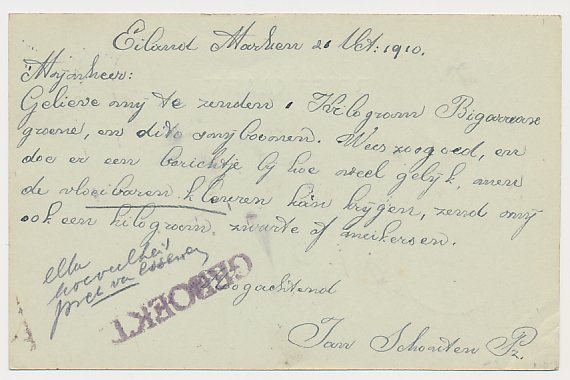 Eiland Marken 21 Oct: 1910.
Mijnheer:
Gelieve mij te zenden 1 Kilogram Bigarreaux
groene, en dito snijboonen. Wees zoo goed, en
doe er een berichtje bij hoe veel gelijk, men
de vloeibaren kleuren kan krijgen, zend mij
ook een kilogram zwarte of meikersen.
hoeveelheid
GEBOEKT
Hoogachtend
Jan Schouten Pz.